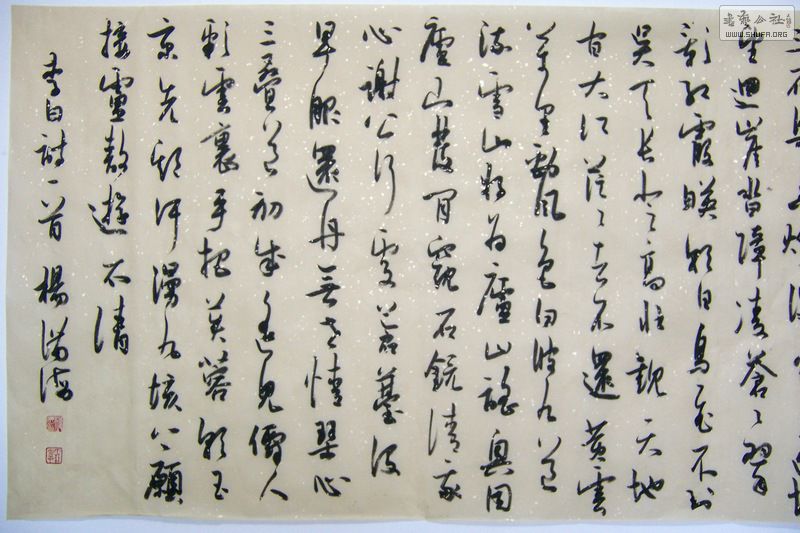 書藝公社
WWW.SHUFA.ORG
望迴崖沓嶂凌蒼々翠
影紅霞映朝日鳥飛不到
吳天長登高壯觀天地
間大江茫々去不還黃雲
萬里動風色白波九道
流雪山好為廬山謠興因
廬山發閒窺石鏡清我
心謝公行處蒼苔沒
早服還丹無世情琴心
三疊道初成遙見仙人
彩雲裏手把芙蓉朝玉
京先期汗漫九垓上願
接盧敖遊太清
李白詩一首 楊